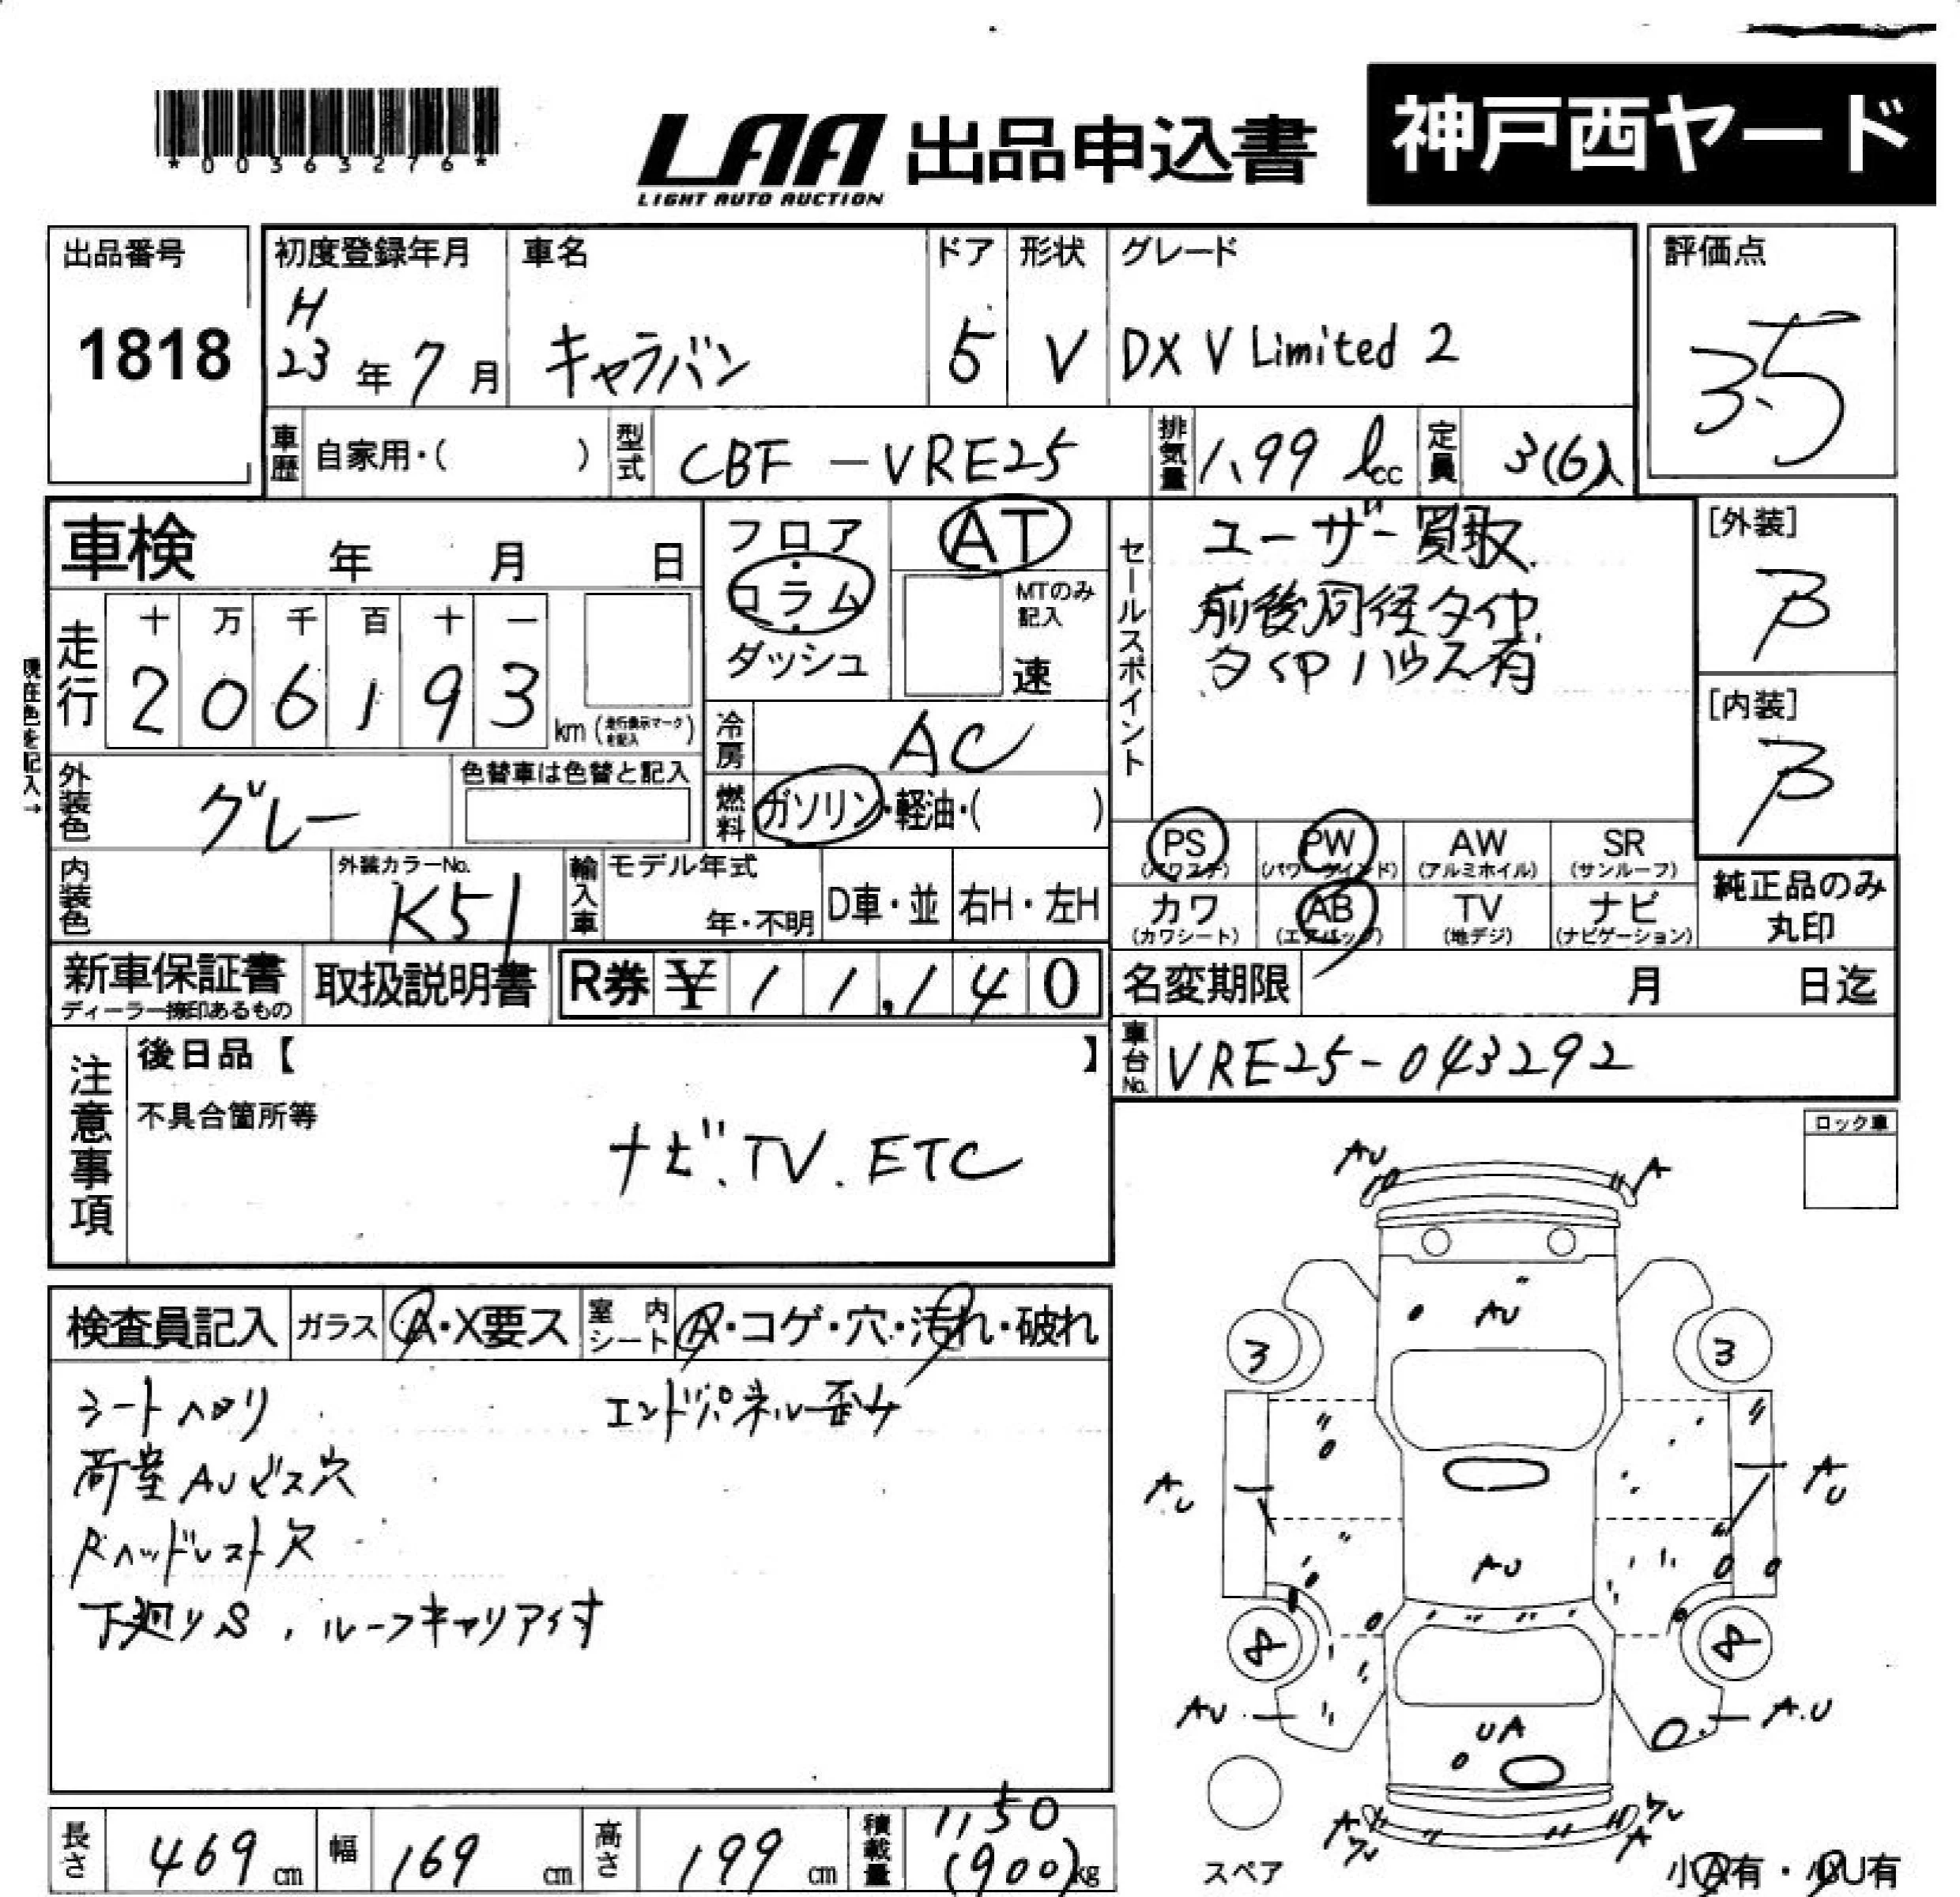 *00363276*
LAA 出品申込書
LIGHT AUTO AUCTION
神戸西ヤード
出品番号
1818
初度登録年月
H
23年7月
車名
キャラバン
ドア
5
形状
V
グレード
DX V Limited 2
評価点
3.5
車歴 自家用・( )
型式 CBF-VRE25
排気量 1.99 ℓcc
定員 3(6)人
車検 年 月 日
走行
十 万 千 百 十 一
2 0 6 1 9 3
km (走行表示マークを記入)
現在色を記入→
フロア・コラム・ダッシュ
AT
MTのみ記入
速
冷房 AC
燃料 ガソリン・軽油・( )
外装色 グレー
色替車は色替と記入
内装色
外装カラーNo.
K51
輸入車 モデル年式
年・不明
D車・並
右H・左H
セールスポイント
ユーザー買取
前後同径タイヤ
タイヤハウス有
[外装]
β
[内装]
β
PS
(パワステ)
PW
(パワーウインド)
AW
(アルミホイル)
SR
(サンルーフ)
カワ
(カワシート)
AB
(エアバッグ)
TV
(地デジ)
ナビ
(ナビゲーション)
純正品のみ
丸印
新車保証書
ディーラー捺印あるもの
取扱説明書
R券 ¥ 11,140
名変期限 月 日迄
車台No. VRE25-043292
注意事項
後日品【 】
不具合箇所等
ナビ.TV.ETC
ロック車
検査員記入
ガラス A・X要ス
室内シート A・コゲ・穴・汚れ・破れ
シートヘタリ
エンドパネル歪ミ
荷室AUビス穴
Rヘッドレスト欠
下廻りS、ルーフキャリア
AU
A
AU
3
3
AU
AU
AU
8
8
AU
A.U
UA
スペア
小A有・小U有
長さ 469 cm
幅 169 cm
高さ 199 cm
積載量 1,150
(900)kg